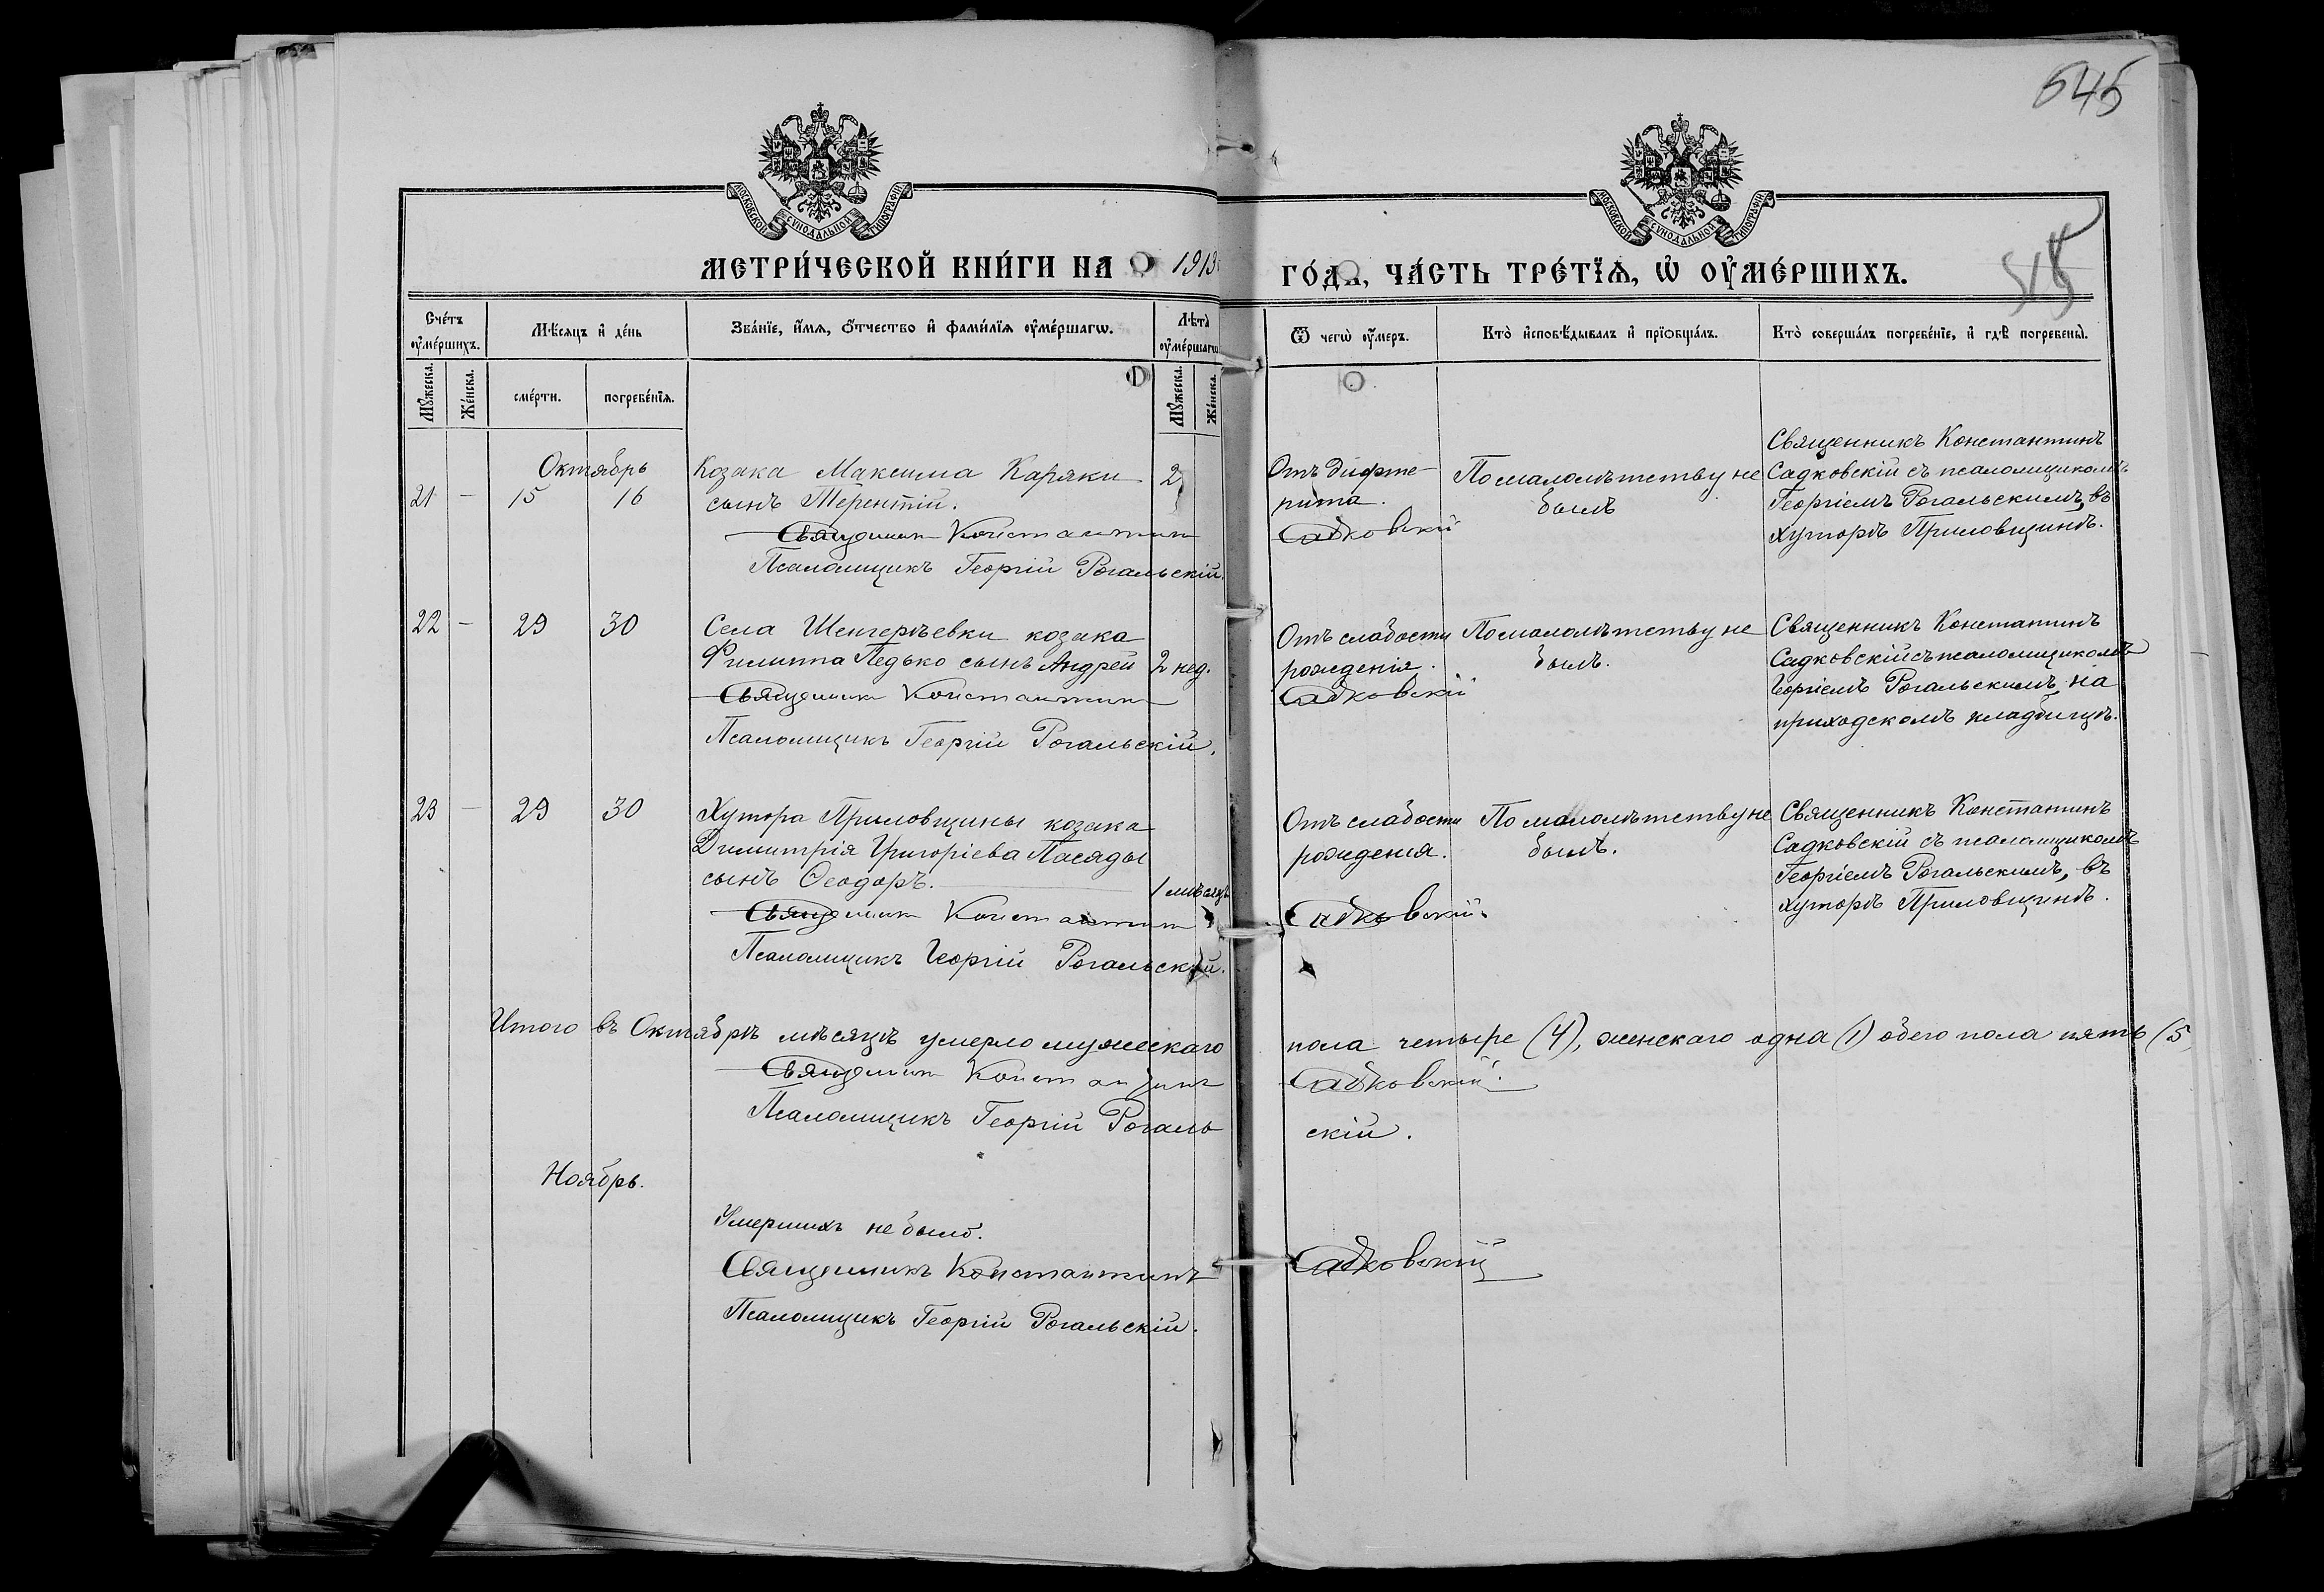 545
МОСКОВСКОЙ СѴНОДАЛЬНОЙ ТИПОГРАФІИ
МОСКОВСКОЙ СѴНОДАЛЬНОЙ ТИПОГРАФІИ
МЕТРИ́ЧЕСКОЙ КНИ́ГИ НА 1913
ГО́ДЪ, ЧА́СТЬ ТРЕ́ТІѦ, Ѡ҆ ОУ҆МЕ́РШИХЪ.
Сче́тъ оу҆ме́ршихъ.
Мѣ́сяцъ и҆ де́нь
Зва́нїе, и҆́мѧ, ѻ҆́тчество и҆ фами́лїѧ оу҆ме́ршагѡ.
Лѣта̀ оу҆ме́ршагѡ
Ѿ чегѡ̀ оу҆́меръ.
Кто̀ и҆сповѣ́дывалъ и҆ прїѡбща́лъ.
Кто̀ соверша́лъ погребе́нїе, и҆ гдѣ̀ погребены̀.
Мꙋ́жеска.
Же́нска.
сме́рти.
погребе́нїѧ.
Мꙋ́жеска.
Же́нска.
Октябрь
21 — 15 16
Козака Максима Каряки
сынъ Терентій.
2
Священникъ Константинъ
Псаломщикъ Георгій Рогальскій.
Отъ дифте-
рита.
Садковскій
По малолѣтству не
былъ
Священникъ Константинъ
Садковскій съ псаломщикомъ
Георгіемъ Рогальскимъ, въ
хуторѣ Приловщинѣ.
22 — 29 30
Села Шенгерѣевки козака
Филиппа Педько сынъ Андрей 2 нед.
Священникъ Константинъ
Псаломщикъ Георгій Рогальскій.
Отъ слабости
рожденія.
Садковскій
По малолѣтству не
былъ.
Священникъ Константинъ
Садковскій съ псаломщикомъ
Георгіемъ Рогальскимъ, на
приходскомъ кладбищѣ.
23 — 29 30
Хутора Приловщины козака
Димитрія Григоріева Пасяды
сынъ Ѳеодоръ. 1 мѣсяцъ
Священникъ Константинъ
Псаломщикъ Георгій Рогальскій.
Отъ слабости
рожденія.
Садковскій.
По малолѣтству не
былъ.
Священникъ Константинъ
Садковскій съ псаломщикомъ
Георгіемъ Рогальскимъ, въ
хуторѣ Приловщинѣ.
Итого въ Октябрѣ мѣсяцѣ умерло мужескаго пола четыре (4), женскаго одна (1) обего пола пять (5
Священникъ Константинъ Садковскій.
Псаломщикъ Георгій Рогаль
скій.
Ноябрь.
Умершихъ не было.
Священникъ Константинъ Садковскій
Псаломщикъ Георгій Рогальскій.